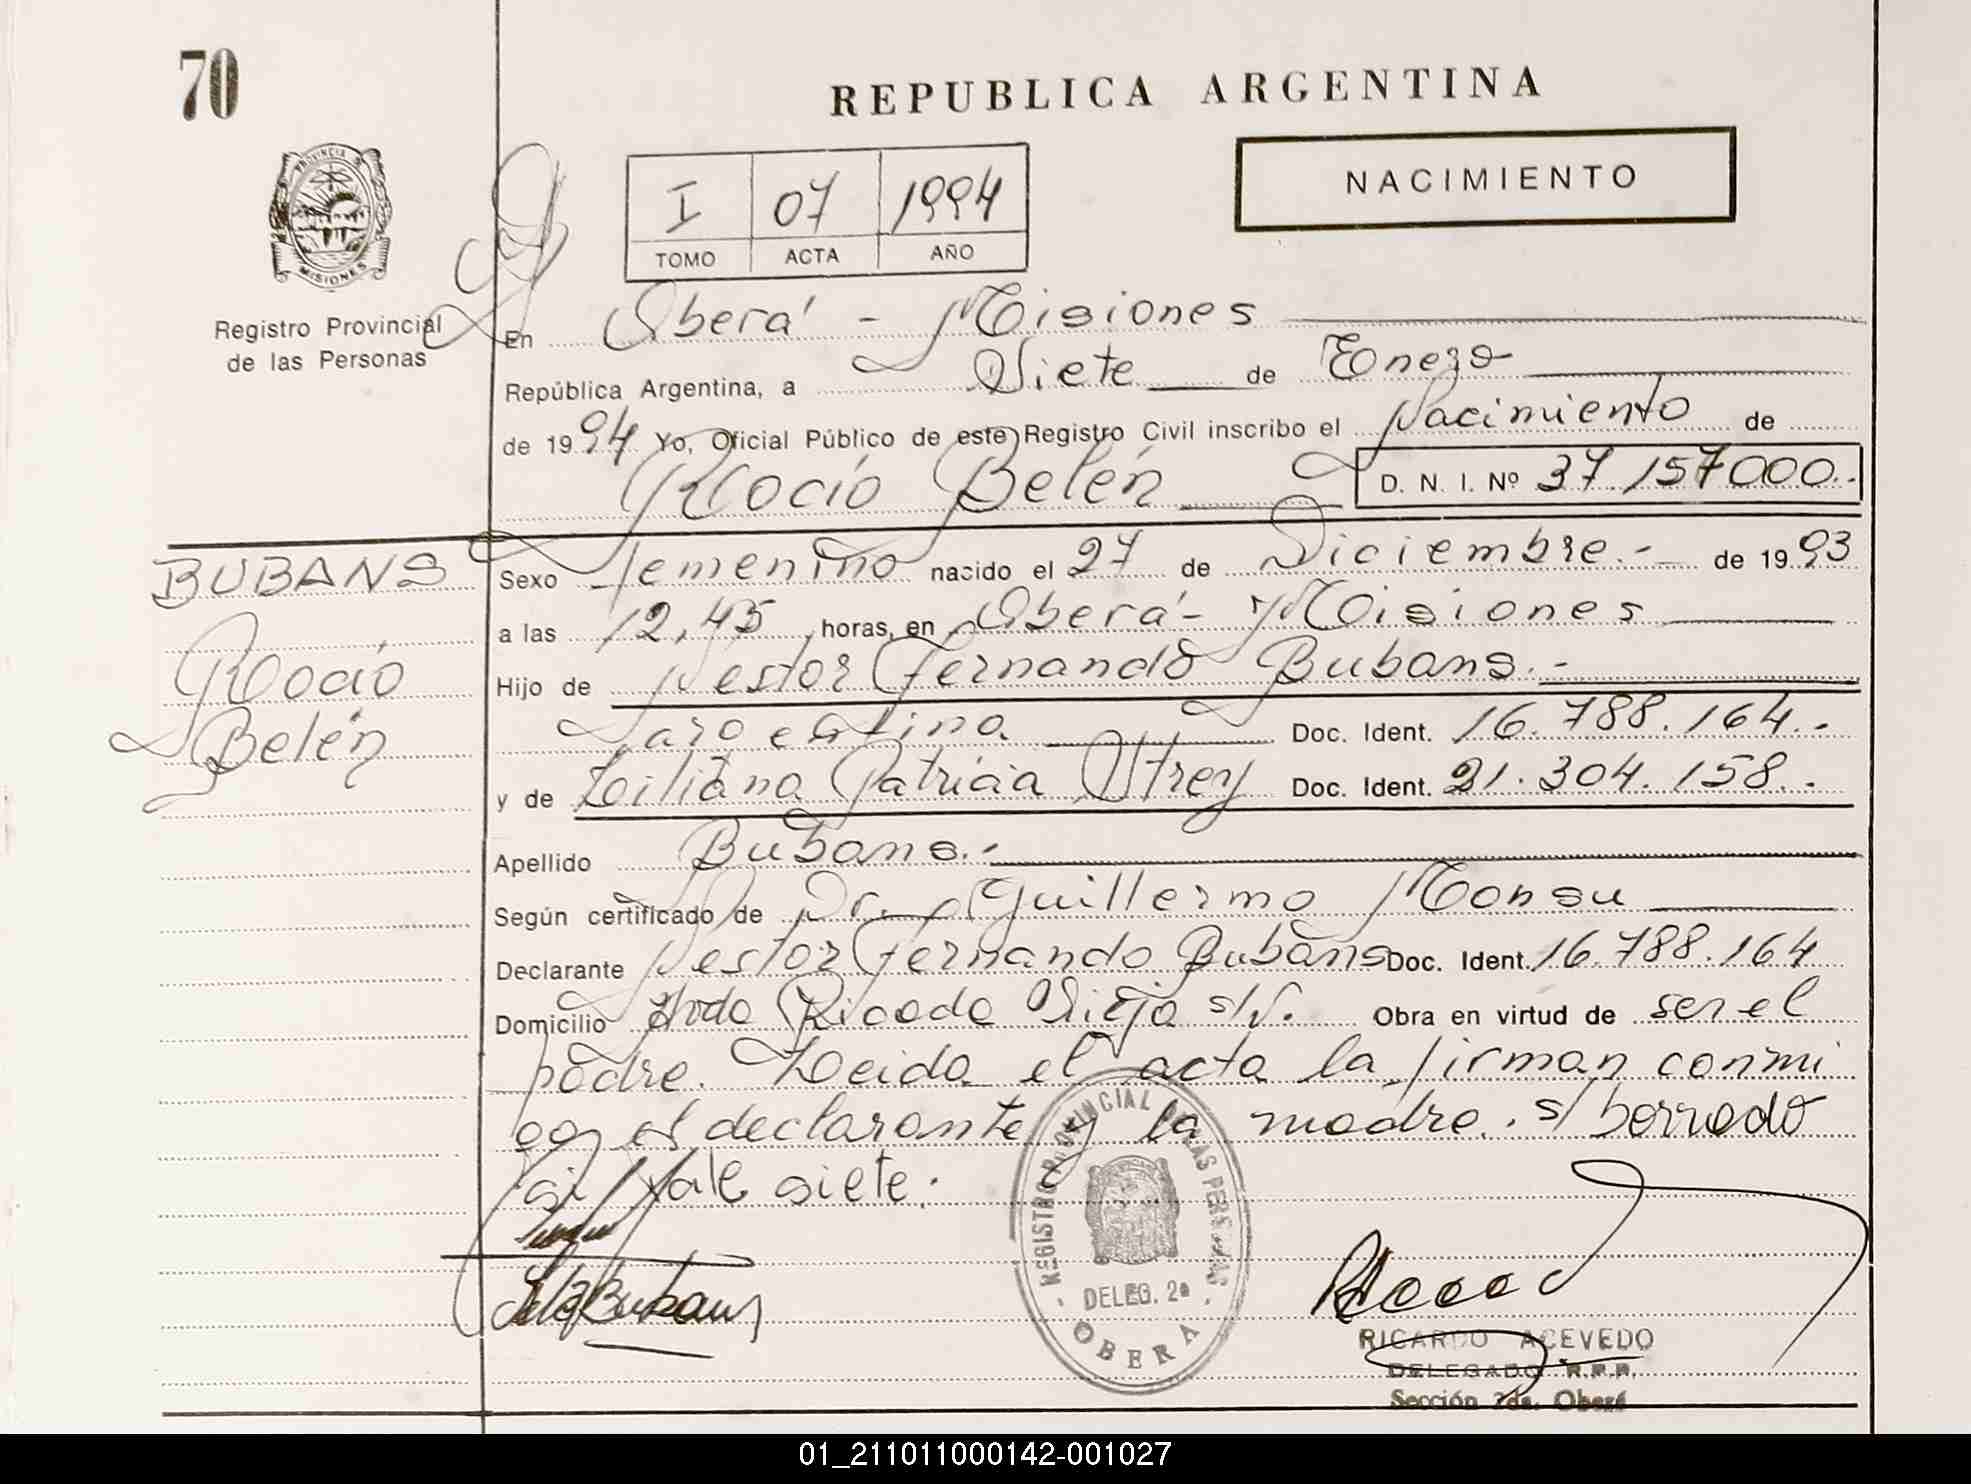 70
REPUBLICA ARGENTINA
PROVINCIA D
MISIONES
Registro Provincial
de las Personas
I 07 1994
TOMO ACTA AÑO
NACIMIENTO
En Oberá - Misiones
República Argentina, a Siete de Enero
de 1994 Yo, Oficial Público de este Registro Civil inscribo el Nacimiento de
Rocío Belén D. N. I. Nº 37.157000.-
BUBANS
Rocío
Belén
Sexo femenino nacido el 27 de Diciembre.- de 1993
a las 12,45 horas, en Oberá - Misiones
Hijo de Nestor Fernando Bubans.-
Argentina Doc. Ident. 16.788.164.-
y de Liliana Patricia Doc. Ident. 21.304.158.-
Apellido Bubans.-
Según certificado de Dr. Guillermo Monsu
Declarante Nestor Fernando Bubans Doc. Ident. 16.788.164
Domicilio Avda Picada Vieja s/N. Obra en virtud de ser el
padre. Leida el acta la firman conmi
go el declarante y la madre. s/borrado
Vale siete.
Bubans
REGISTRO PROVINCIAL DE LAS PERSONAS
DELEG. 2a
OBERA
RICARDO ACEVEDO
DELEGADO R.P.P.
Sección 2da. Oberá
01_211011000142-001027